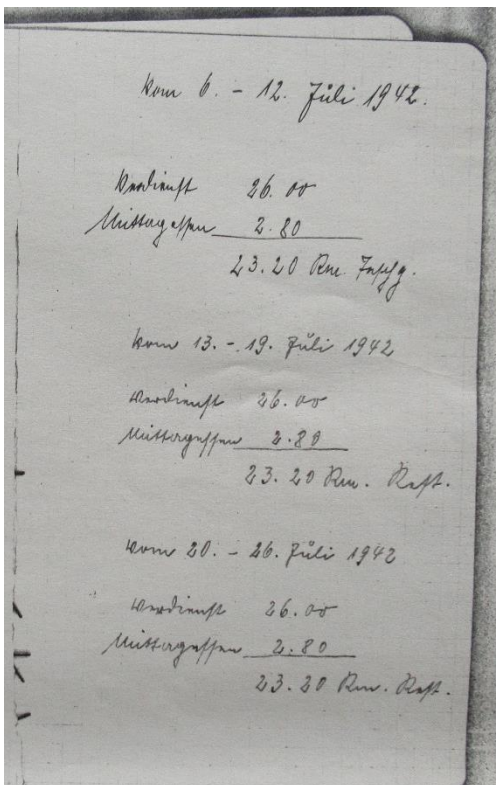 vom 6. - 12. Juli 1942.
Verdienst 26.00
Mittagessen 2.80
23.20 Rm.
vom 13. - 19. Juli 1942
Verdienst 26.00
Mittagessen 2.80
23.20 Rm. Rest.
vom 20. - 26. Juli 1942
Verdienst 26.00
Mittagessen 2.80
23.20 Rm. Rest.